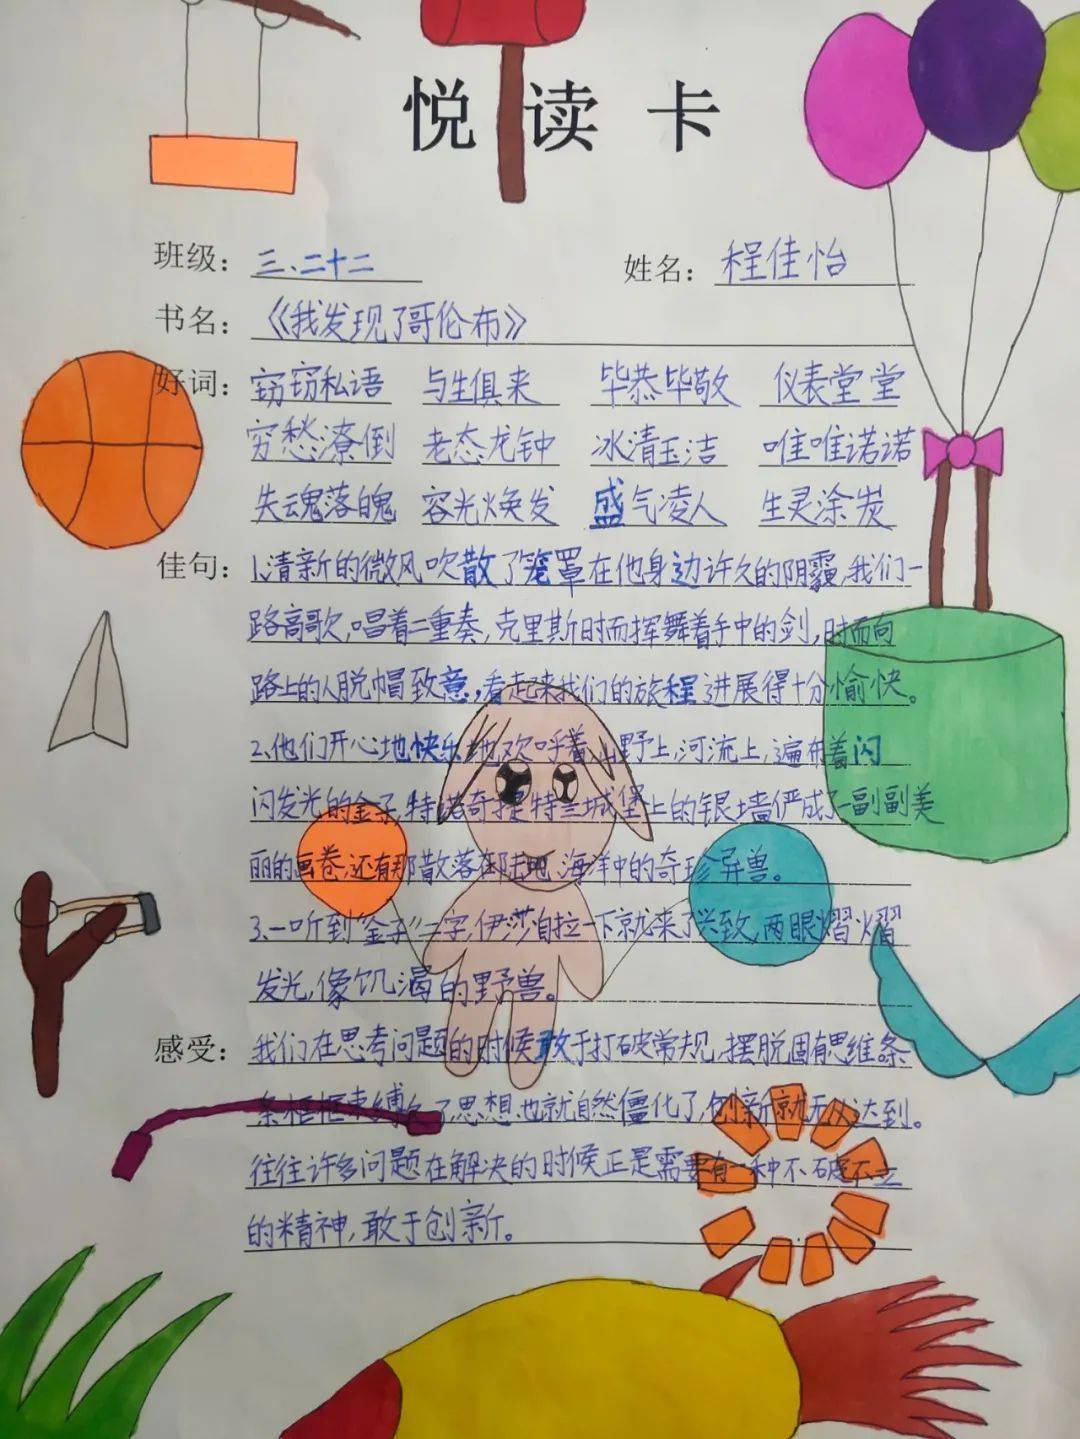 悦读卡
班级：三、二十二 姓名：程佳怡
书名：《我发现了哥伦布》
好词：窃窃私语 与生俱来 毕恭毕敬 仪表堂堂
穷愁潦倒 老态龙钟 冰清玉洁 唯唯诺诺
失魂落魄 容光焕发 盛气凌人 生灵涂炭
佳句：1、清新的微风吹散了笼罩在他身边许久的阴霾，我们一
路高歌，唱着二重奏，克里斯时而挥舞着手中的剑，时而向
路上的人脱帽致意，看起来我们的旅程进展得十分愉快。
2、他们开心地快乐地欢呼着，山野上，河流上，遍布着闪
闪发光的金子，特诺奇提特兰城堡上的银墙俨成了一副副美
丽的画卷，还有那散落在陆地、海洋中的奇珍异兽。
3、一听到“金子”二字，伊莎伯拉一下就来了兴致，两眼熠熠
发光，像饥渴的野兽。
感受：我们在思考问题的时候敢于打破常规，摆脱固有思维条
条框框束缚了思想，也就自然僵化了，创新就无从达到。
往往许多问题在解决的时候正是需要有一种不破不立
的精神，敢于创新。